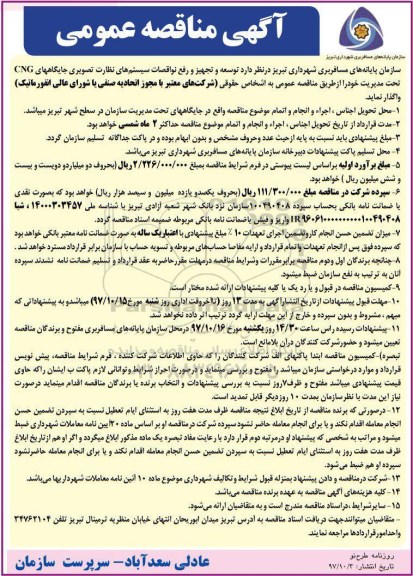 آگهی مناقصه عمومی
سازمان پایانه‌های مسافربری شهرداری تبریز
سازمان پایانه‌های مسافربری شهرداری تبریز درنظر دارد توسعه و تجهیز و رفع نواقصات سیستم‌های نظارت تصویری جایگاههای CNG
تحت مدیریت خودرا ازطریق مناقصه عمومی به اشخاص حقوقی (شرکت‌های معتبر با مجوز اتحادیه صنفی یا شورای عالی انفورماتیک)
واگذار نماید.
۱- محل تحویل اجناس ، اجراء و انجام و اتمام موضوع مناقصه واقع در جایگاههای تحت مدیریت سازمان در سطح شهر تبریز میباشد.
۲-مدت قرارداد از تاریخ تحویل اجناس ، اجراء و انجام و اتمام موضوع مناقصه حداکثر ۲ ماه شمسی خواهد بود.
۳- مبلغ پیشنهادی باید نسبت به پایه ازحیث عدد وحروف مشخص و بدون ابهام بوده و در پاکت جداگانه تسلیم سازمان گردد.
۴- محل تسلیم پاکت پیشنهادات دبیرخانه سازمان پایانه‌های مسافربری شهرداری تبریز می‌باشد.
۵- مبلغ برآورد اولیه براساس لیست پیوستی در فرم شرایط مناقصه بمبلغ ۲/۲۲۶/۰۰۰/۰۰۰ ریال (بحروف دو میلیاردو دویست و بیست
و شش میلیون ریال ) خواهد بود.
۶- سپرده شرکت در مناقصه مبلغ ۱۱۱/۳۰۰/۰۰۰ ریال( بحروف یکصدو یازده میلیون و سیصد هزار ریال) خواهد بود که بصورت نقدی
یا ضمانت نامه بانکی بحساب سپرده ۱۰۰۴۹۰۴۰۸ سازمان نزد بانک شهر شعبه آزادی تبریز با شناسه ملی ۱۴۰۰۰۳۰۳۴۵۷ ، شبا
واریز و فیش یاضمانت نامه بانکی مربوطه ضمیمه اسناد مناقصه گردد.
۷- میزان تضمین حسن انجام کاروتضمین اجرای تعهدات ۱۰٪ مبلغ پیشنهادی با اعتباریک ساله به صورت ضمانت نامه معتبر بانکی خواهد بود
که سپرده فوق پس ازانجام تعهدات و اتمام قرارداد و ارایه مفاصا حساب‌های مربوطه و تسویه حساب با سازمان برابر قرارداد مسترد خواهد شد .
۸- چنانچه برندگان اول ودوم مناقصه برابرمقررات وشرایط مناقصه درمهلت مقررحاضربه عقد قرارداد و تسلیم ضمانت نامه نشوند سپرده
آنان به ترتیب به نفع سازمان ضبط میشود.
۹-کمیسیون مناقصه در قبول و یا رد یک یا کلیه پیشنهادات ارائه شده مختار است.
۱۰-مهلت قبول پیشنهادات ازتاریخ انتشارآگهی به مدت ۱۳ روز (تاآخروقت اداری روز شنبه مورخ ۹۷/۱۰/۱۵) میباشدو به پیشنهاداتی که
مبهم ، مشروط و بدون سپرده و خارج از این مهلت ارایه گردد ترتیب اثر داده نخواهد شد.
۱۱- پیشنهادات رسیده راس ساعت ۱۴/۳۰ روزیکشنبه مورخ ۹۷/۱۰/۱۶ درمحل سازمان پایانه‌های مسافربری مفتوح و برندگان مناقصه
تعیین میشود وحضورشرکت کنندگان درآن بلامانع است.
تبصره)-کمیسیون مناقصه ابتدا پاکتهای الف شرکت کنندگان را که حاوی اطلاعات شرکت کننده ، فرم شرایط مناقصه، پیش نویس
قرارداد و موارد درخواستی سازمان میباشد را مفتوح و بررسی مینماید و درصورت احراز شرایط وتوانائی لازم پاکت ب ایشان راکه حاوی
قیمت پیشنهادی میباشد مفتوح و ظرف۷روز نسبت به بررسی پیشنهادات و انتخاب برنده یا برندگان مناقصه اقدام مینماید درصورت
نیاز این مدت با نظرسازمان بمدت ۱۰ روزدیگر قابل تمدید است.
۱۲- درصورتی که برنده مناقصه از تاریخ ابلاغ نتیجه مناقصه ظرف مدت هفت روز به استثنای ایام تعطیل نسبت به سپردن تضمین حسن
انجام معامله اقدام نکند و یا برای انجام معامله حاضر نشود سپرده شرکت در مناقصه او بر اساس ماده ۲۰آیین نامه معاملات شهرداری ضبط
میشود و مراتب به شخصی که پیشنهاد او درمرتبه دوم قرار دارد با رعایت مفاد تبصره یک ماده مذکور ابلاغ میگردد و اگر او هم ازتاریخ ابلاغ
ظرف مدت هفت روز به استثنای ایام تعطیل نسبت به سپردن تضمین حسن انجام معامله اقدام نکند و یا برای انجام معامله حاضرنشود
سپرده او هم ضبط می‌شود.
۱۳-شرکت درمناقصه و دادن پیشنهاد بمنزله قبول شرایط و تکالیف شهرداری موضوع ماده ۱۰ آئین نامه معاملات شهرداریها می‌باشد.
۱۴-کلیه هزینه‌های آگهی مناقصه به عهده برنده مناقصه می‌باشد.
۱۵- سایرشرایط ،دراسناد مناقصه مندرج است و به متقاضیان ارائه می‌شود.
- متقاضیان میتوانندجهت دریافت اسناد مناقصه به آدرس تبریز میدان ابوریحان انتهای خیابان منظریه ترمینال تبریز تلفن ۳۴۷۶۳۱۰۴
واحدامورقراردادها مراجعه نمایند.
روزنامه طرح‌نو
تاریخ انتشار: ۹۷/۱۰/۳
عادلی سعدآباد– سرپرست سازمان